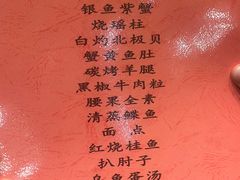 银鱼紫蟹
烧瑶柱
白灼北极贝
蟹黄鱼肚
碳烤羊腿
黑椒牛肉粒
腰果全素
清蒸鲽鱼
面点
红烧桂鱼
扒肘子
乌鱼蛋汤